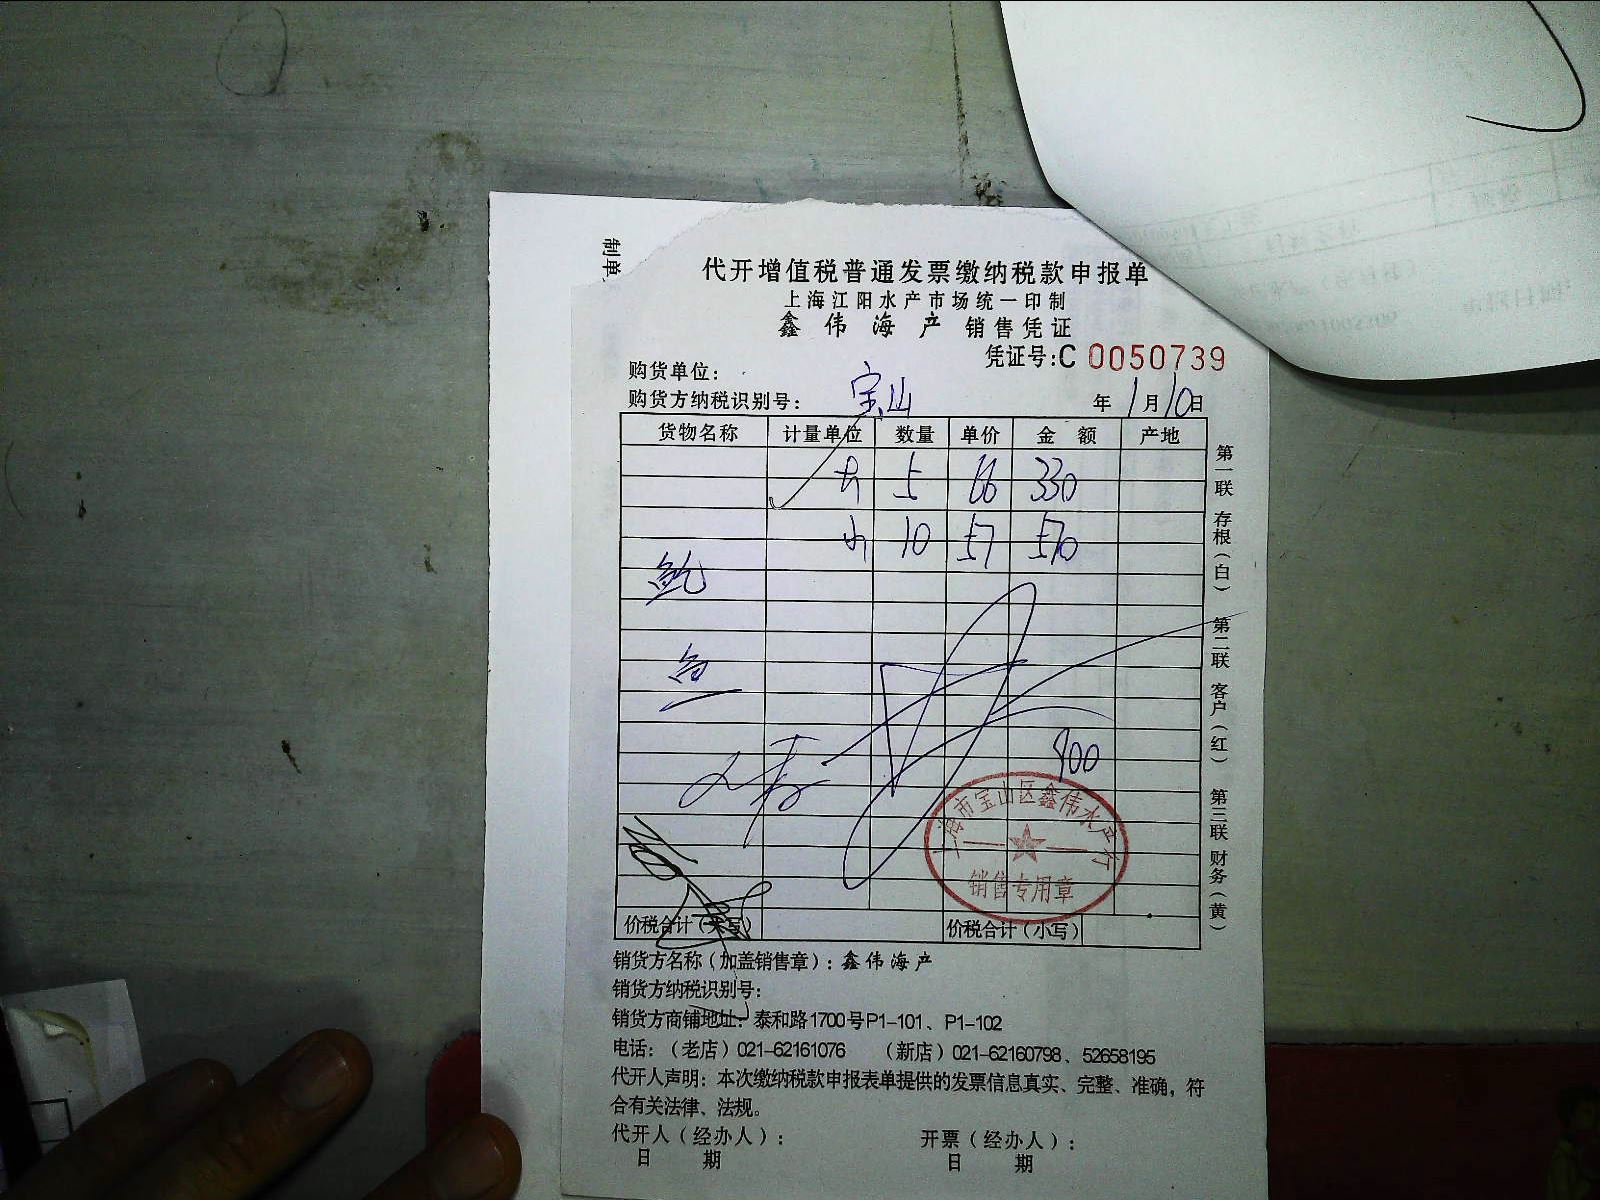 制单
代开增值税普通发票缴纳税款申报单
上海江阳水产市场统一印制
鑫伟海产 销售凭证
凭证号:C 0050739
购货单位:
宝山
购货方纳税识别号: 年 1月10日
货物名称 计量单位 数量 单价 金额 产地
大 5 66 330
小 10 57 570
鲍
鱼
900
上海市宝山区鑫伟水产行
销售专用章
价税合计(大写) 价税合计(小写)
第一联 存根(白) 第二联 客户(红) 第三联 财务(黄)
销货方名称(加盖销售章): 鑫伟海产
销货方纳税识别号:
销货方商铺地址: 泰和路1700号P1-101、P1-102
电话:(老店)021-62161076 (新店)021-62160798、52658195
代开人声明:本次缴纳税款申报表单提供的发票信息真实、完整、准确,符
合有关法律、法规。
代开人(经办人): 开票(经办人):
日 期 日 期